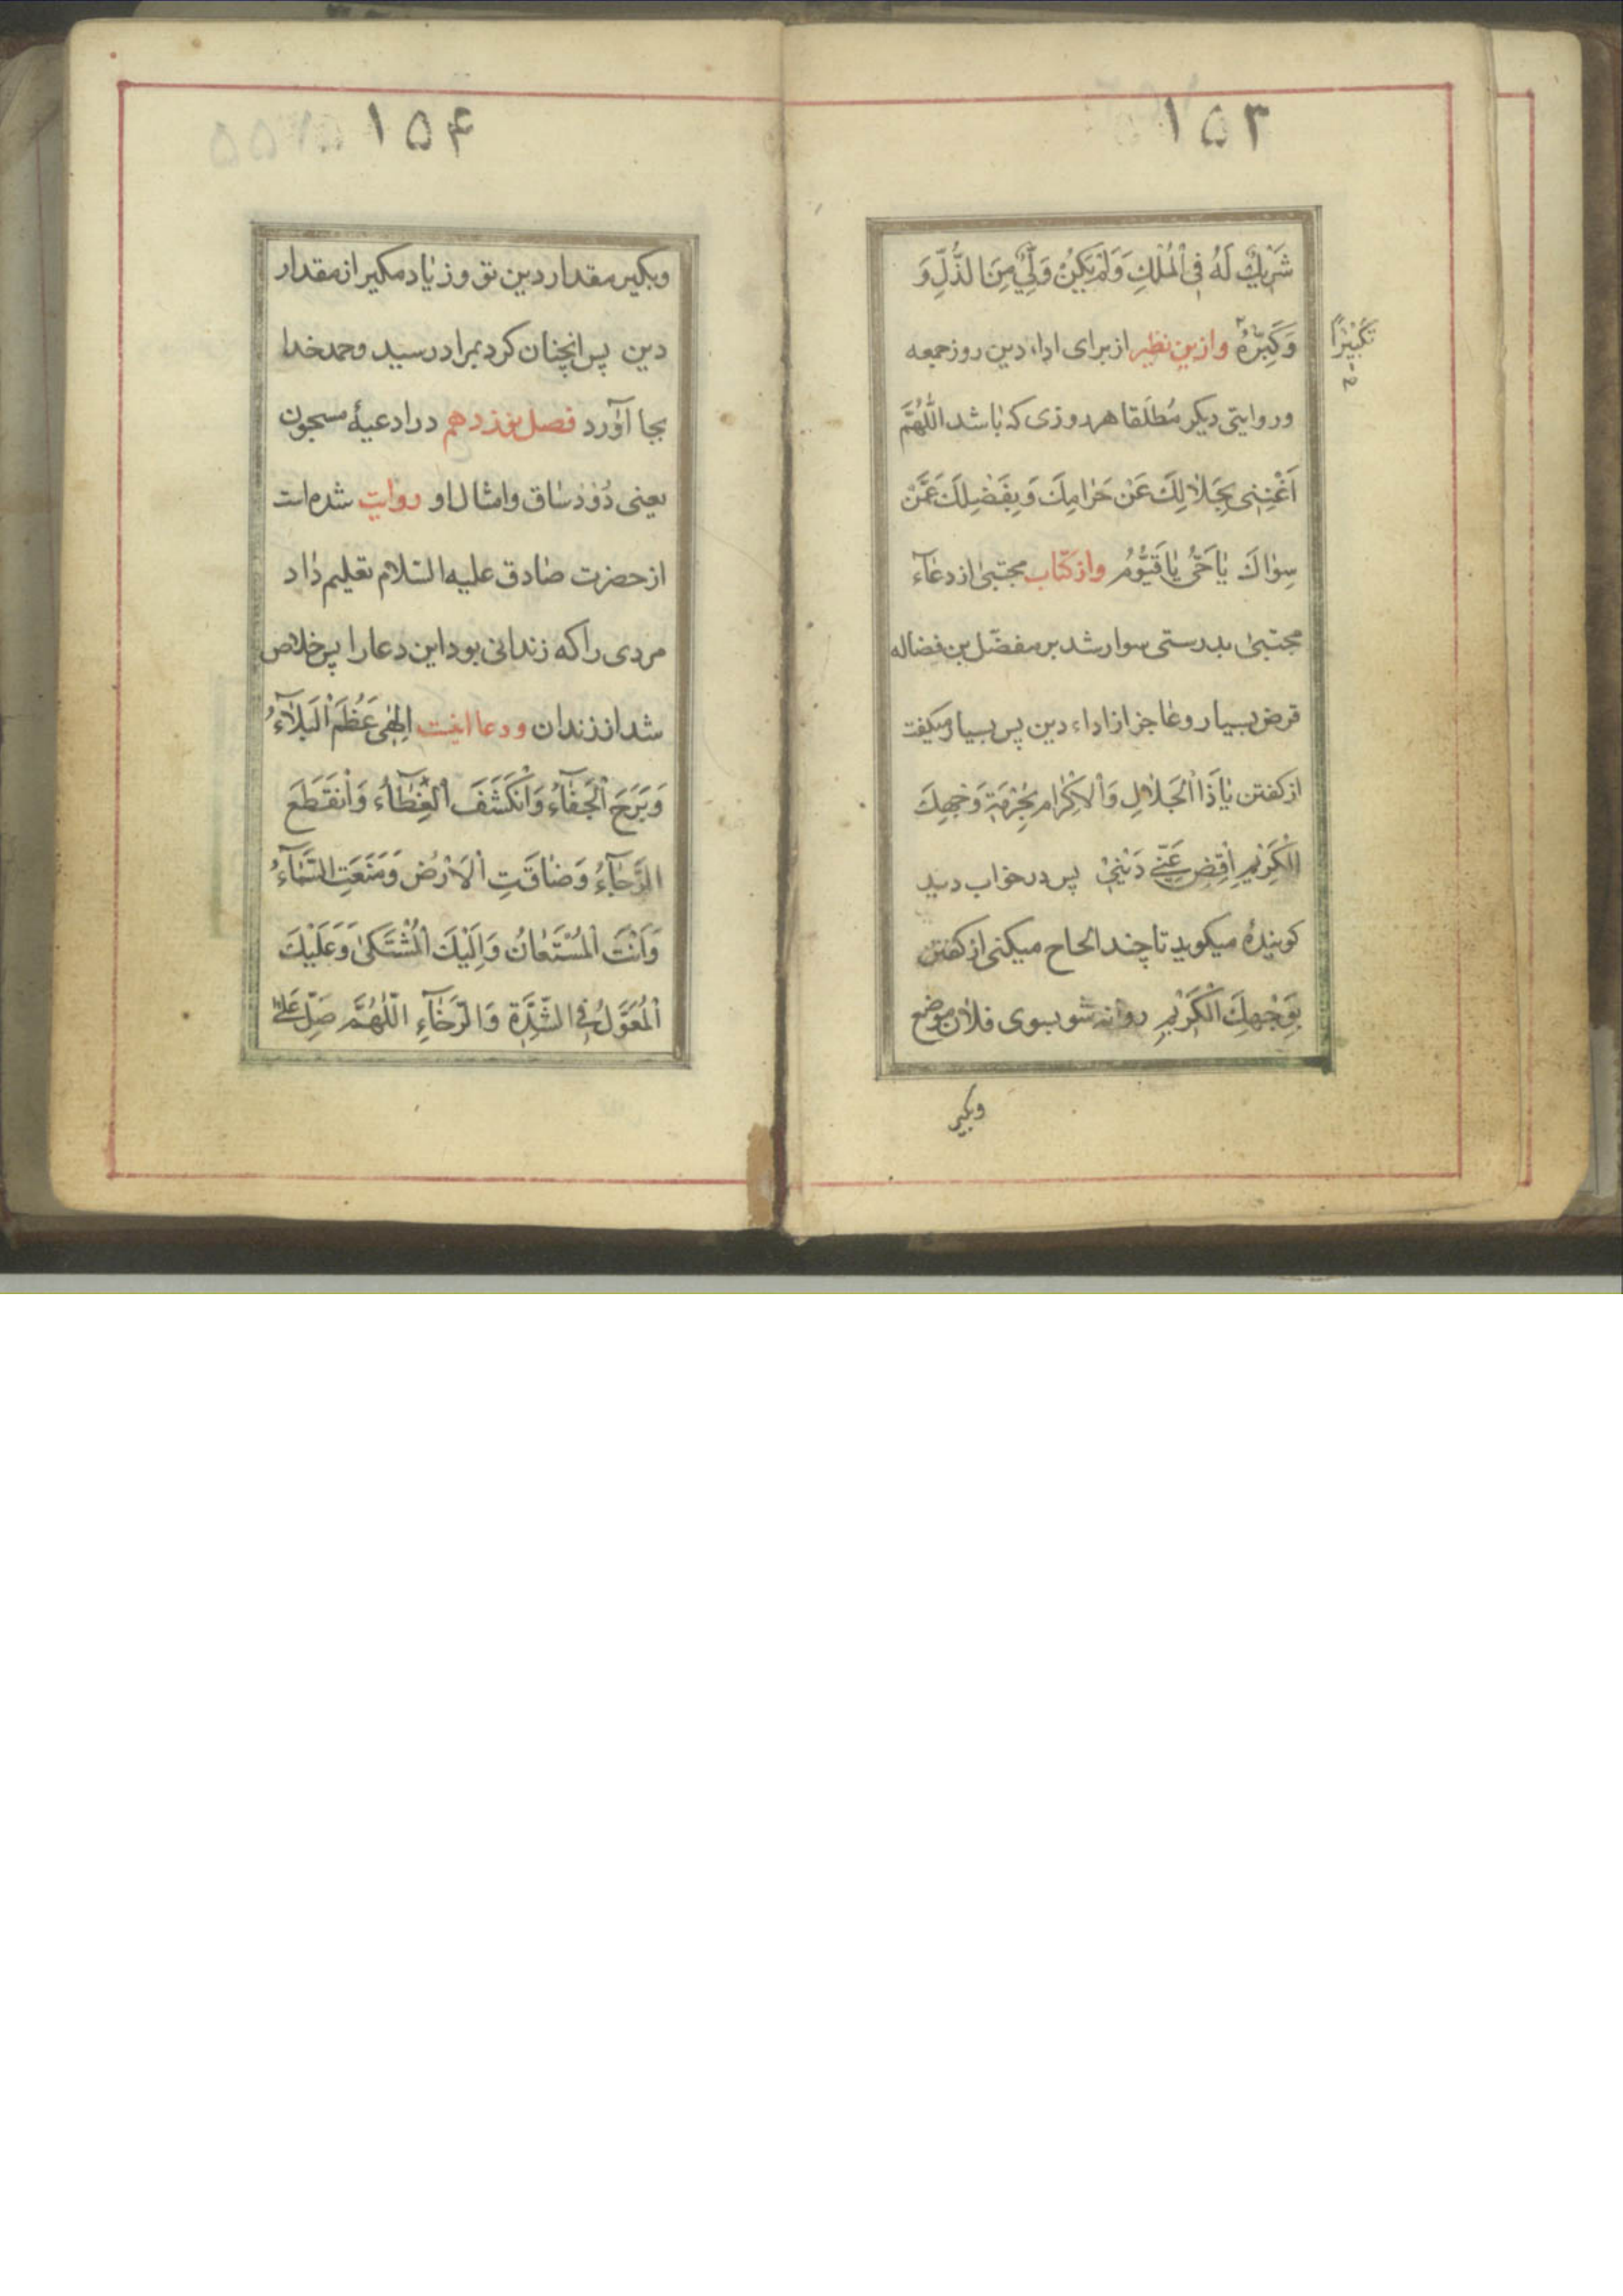 ١٥٣
شَرِيكٌ لَهُ فِي الْمُلْكِ وَلَمْ يَكُنْ وَلِيٌّ مِنَ الذُّلِّ وَ
وَكَبِّرْهُ وازین نظیر از برای اداء دین روز جمعه
تَكْبِيرًا
وروایتی دیکر مُطلَقا هر روزی که باشد اللَّهُمَّ
اَغْنِنِي بِحَلَالِكَ عَنْ حَرَامِكَ وَبِفَضْلِكَ عَمَّنْ
سِوَاكَ يَا حَيُّ يَا قَيُّومُ واز کتاب مجتبی از دعاء
مجتبی بدرستی سوار شد بر مفضّل بن فضاله
قرض بسیار وعاجز از اداء دین پس بسیار میکفت
از کفتن يَا ذَا الْجَلَالِ وَالْاِكْرَامِ بِحُرْمَةِ وَجْهِكَ
الْكَرِيمِ اِقْضِ عَنِّي دَيْنِي پس در خواب دید
کوینده میکوید تا چند الحاح میکنی از کفتن
بِوَجْهِكَ الْكَرِيمِ روانه شو بسوی فلان موضع
وبکیر
١٥۴
وبکیر مقدار دین تو وزیاد مکیر از مقدار
دین پس انچنان کرد بمراد رسید وحمد خدا
بجا آورد فصل نوزدهم در ادعیهٔ مسجون
یعنی دُوُدساق وامثال او روایت شده است
از حضرت صادق علیه السّلام تعلیم داد
مردی را که زندانی بود این دعا را پس خلاص
شد از زندان ودعا اینست اِلٰهِي عَظُمَ الْبَلَاءُ
وَبَرَحَ الْخَفَاءُ وَانْكَشَفَ الْغِطَاءُ وَانْقَطَعَ
الرَّجَاءُ وَضَاقَتِ الْاَرْضُ وَمَنَعَتِ السَّمَاءُ
وَاَنْتَ الْمُسْتَعَانُ وَاِلَيْكَ الْمُشْتَكىٰ وَعَلَيْكَ
الْمُعَوَّلُ فِي الشِّدَّةِ وَالرَّخَاءِ اللّٰهُمَّ صَلِّ عَلىٰ